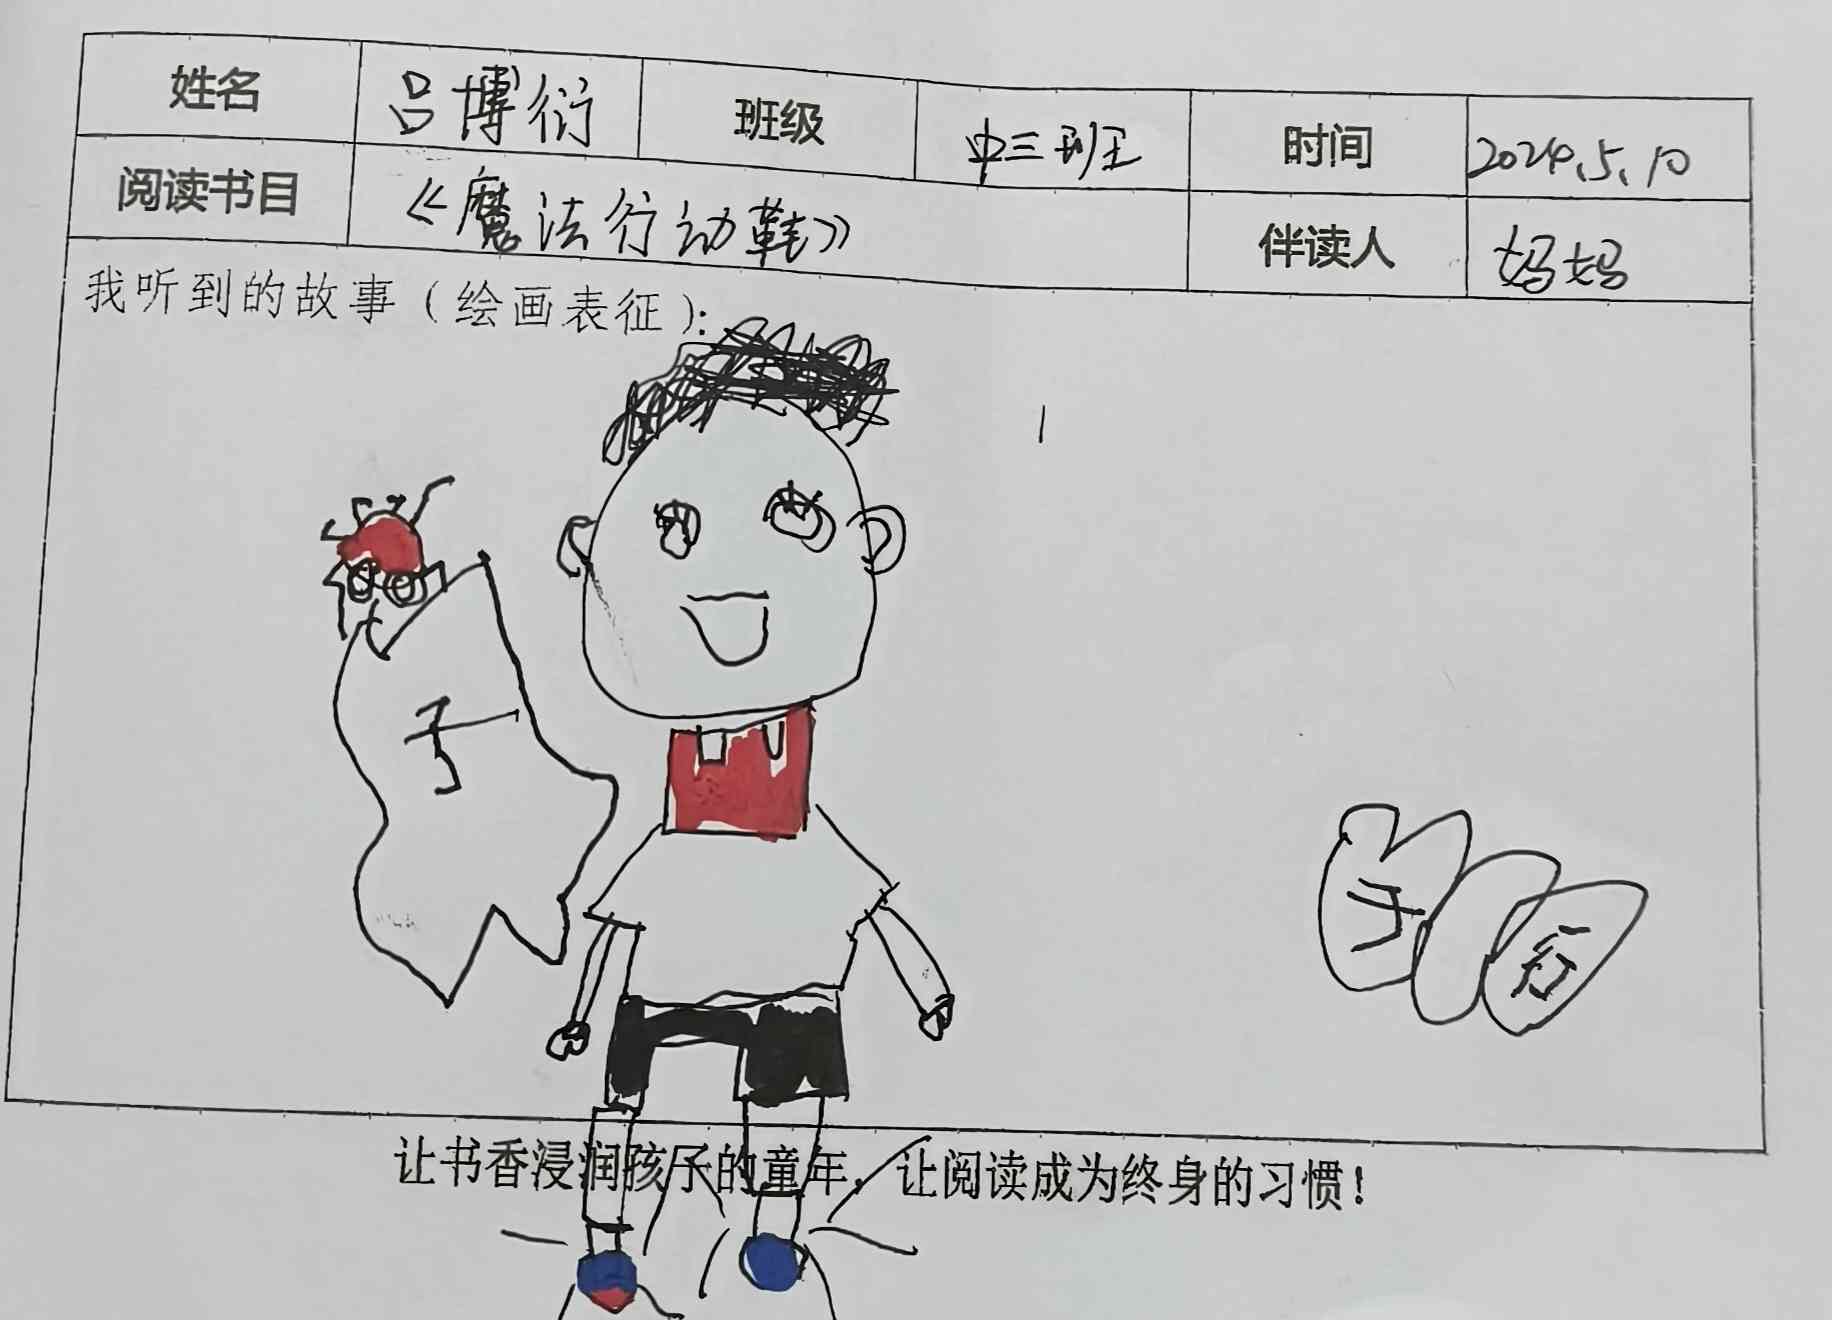 姓名 吕博衍 班级 中三班 时间 2024.5.10
阅读书目 《魔法行动鞋》 伴读人 妈妈
我听到的故事（绘画表征）：
子
行
让书香浸润孩子的童年，让阅读成为终身的习惯！